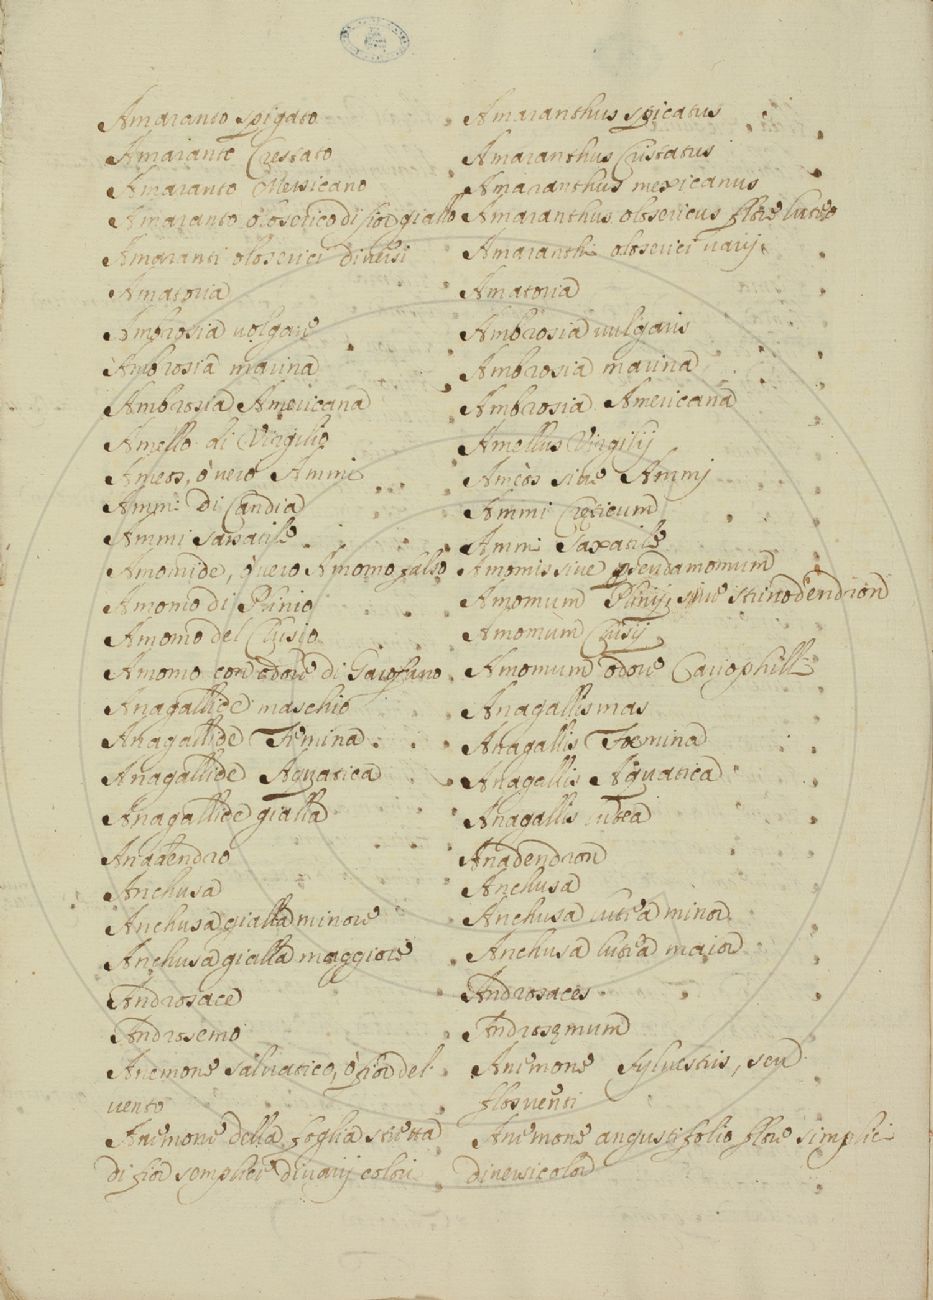 Amaranto spigato Amaranthus spicatus
Amaranto Crestato Amaranthus Cristatus
Amaranto Messicano Amaranthus mexicanus
Amaranto oloserico di fior giallo Amaranthus olosericus flore luteo
Amaranti oloserici diversi Amaranthi oloserici varij
Amatoria Amatoria
Ambrosia volgare Ambrosia vulgaris
Ambrosia marina Ambrosia marina
Ambrosia Americana Ambrosia Americana
Amello di Virgilio Amellus Virgilij
Ameos, ò vero Ammi Ameos sive Ammj
Ammi di Candia Ammi Creticum
Ammi Sassatile Ammi Saxatile
Amomide, ò vero Amomo falso Amomis sive pseudamomum
Amomo di Plinio Amomum Plinij, sive
Amomo del Clusio Amomum Clusij
Amomo con odore di Garofano Amomum odore Cariophill
Anagallide maschio Anagallis mas
Anagallide Femina Anagallis Fœmina
Anagallide Aquatica Anagallis Aquatica
Anagallide gialla Anagallis lutea
Anadendro Anadendron
Anchusa Anchusa
Anchusa gialla minore Anchusa lutea minor
Anchusa gialla maggiore Anchusa lutea maior
Androsace Androsaces
Androsemo Androsęmum
Anemone salvatico, ò fior del Anemone sylvestris, seu
vento flos venti
Anemone della foglia stretta Anemone angustifolio flore simplici
di fior semplice di varij colori diversicolor